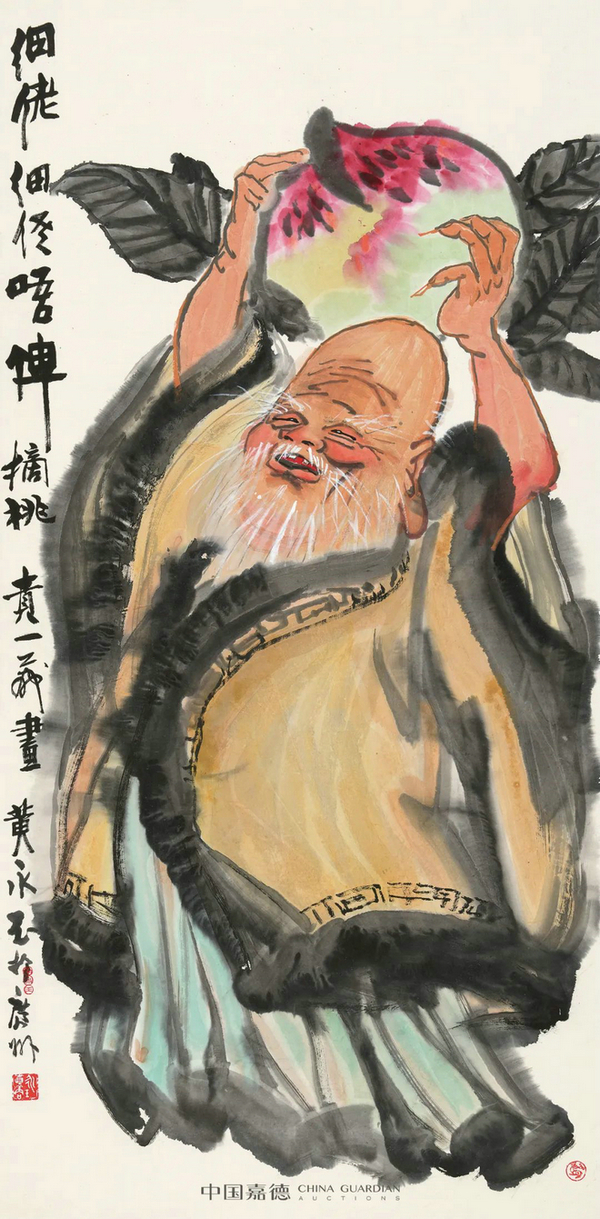 細佬細佬唔俾摘桃 一 畫 黄永玉於廣州
中国嘉德 CHINA GUARDIAN
AUCTIONS